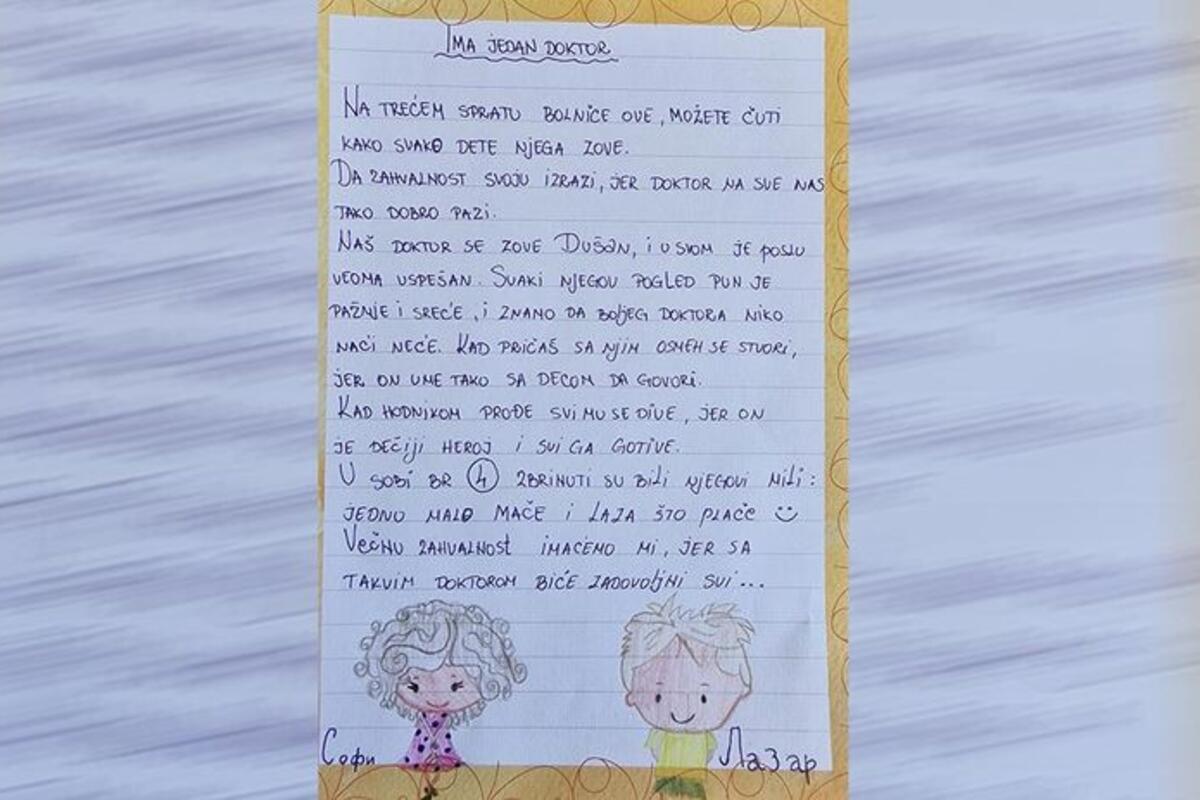 IMA JEDAN DOKTOR
NA TREĆEM SPRATU BOLNICE OVE, MOŽETE ČUTI
KAKO SVAKO DETE NJEGA ZOVE.
DA ZAHVALNOST SVOJU IZRAZI, JER DOKTOR NA SVE NAS
TAKO DOBRO PAZI.
NAŠ DOKTOR SE ZOVE DUŠAN, I U SVOM JE POSLU
VEOMA USPEŠAN. SVAKI NJEGOV POGLED PUN JE
PAŽNJE I SREĆE, I ZNAMO DA BOLJEG DOKTORA NIKO
NAĆI NEĆE. KAD PRIČAŠ SA NJIM OSMEH SE STVORI,
JER ON UME TAKO SA DECOM DA GOVORI.
KAD HODNIKOM PROĐE SVI MU SE DIVE, JER ON
JE DEČIJI HEROJ I SVI GA GOTIVE.
U SOBI BR 4 ZBRINUTI SU BILI NJEGOVI MILI:
JEDNO MALO MAČE I LAZA ŠTO PLAČE ☺
VEČNU ZAHVALNOST IMAĆEMO MI, JER SA
TAKVIM DOKTOROM BIĆE ZADOVOLJNI SVI...
Софи Лазар